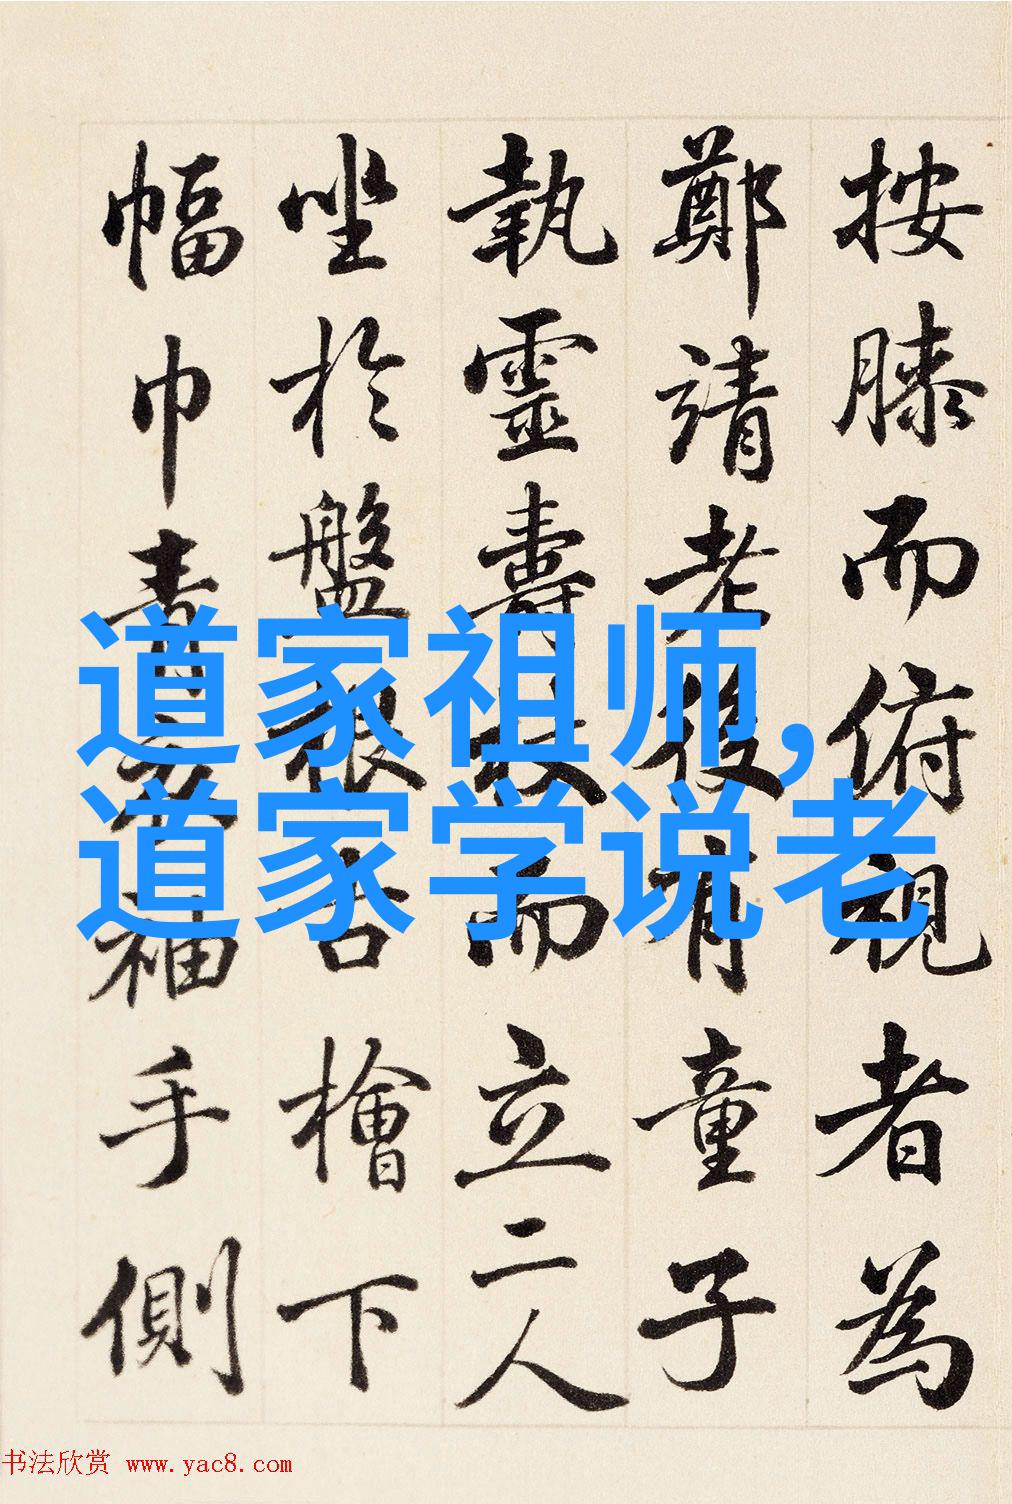 按膝而俯視者為
鄭靖老後有童子
執靈壽杖而立二人
坐於盤根古檜下
幅巾青衣袖手側
道家祖师,
道家学说老
书法欣赏 www.yac8.com